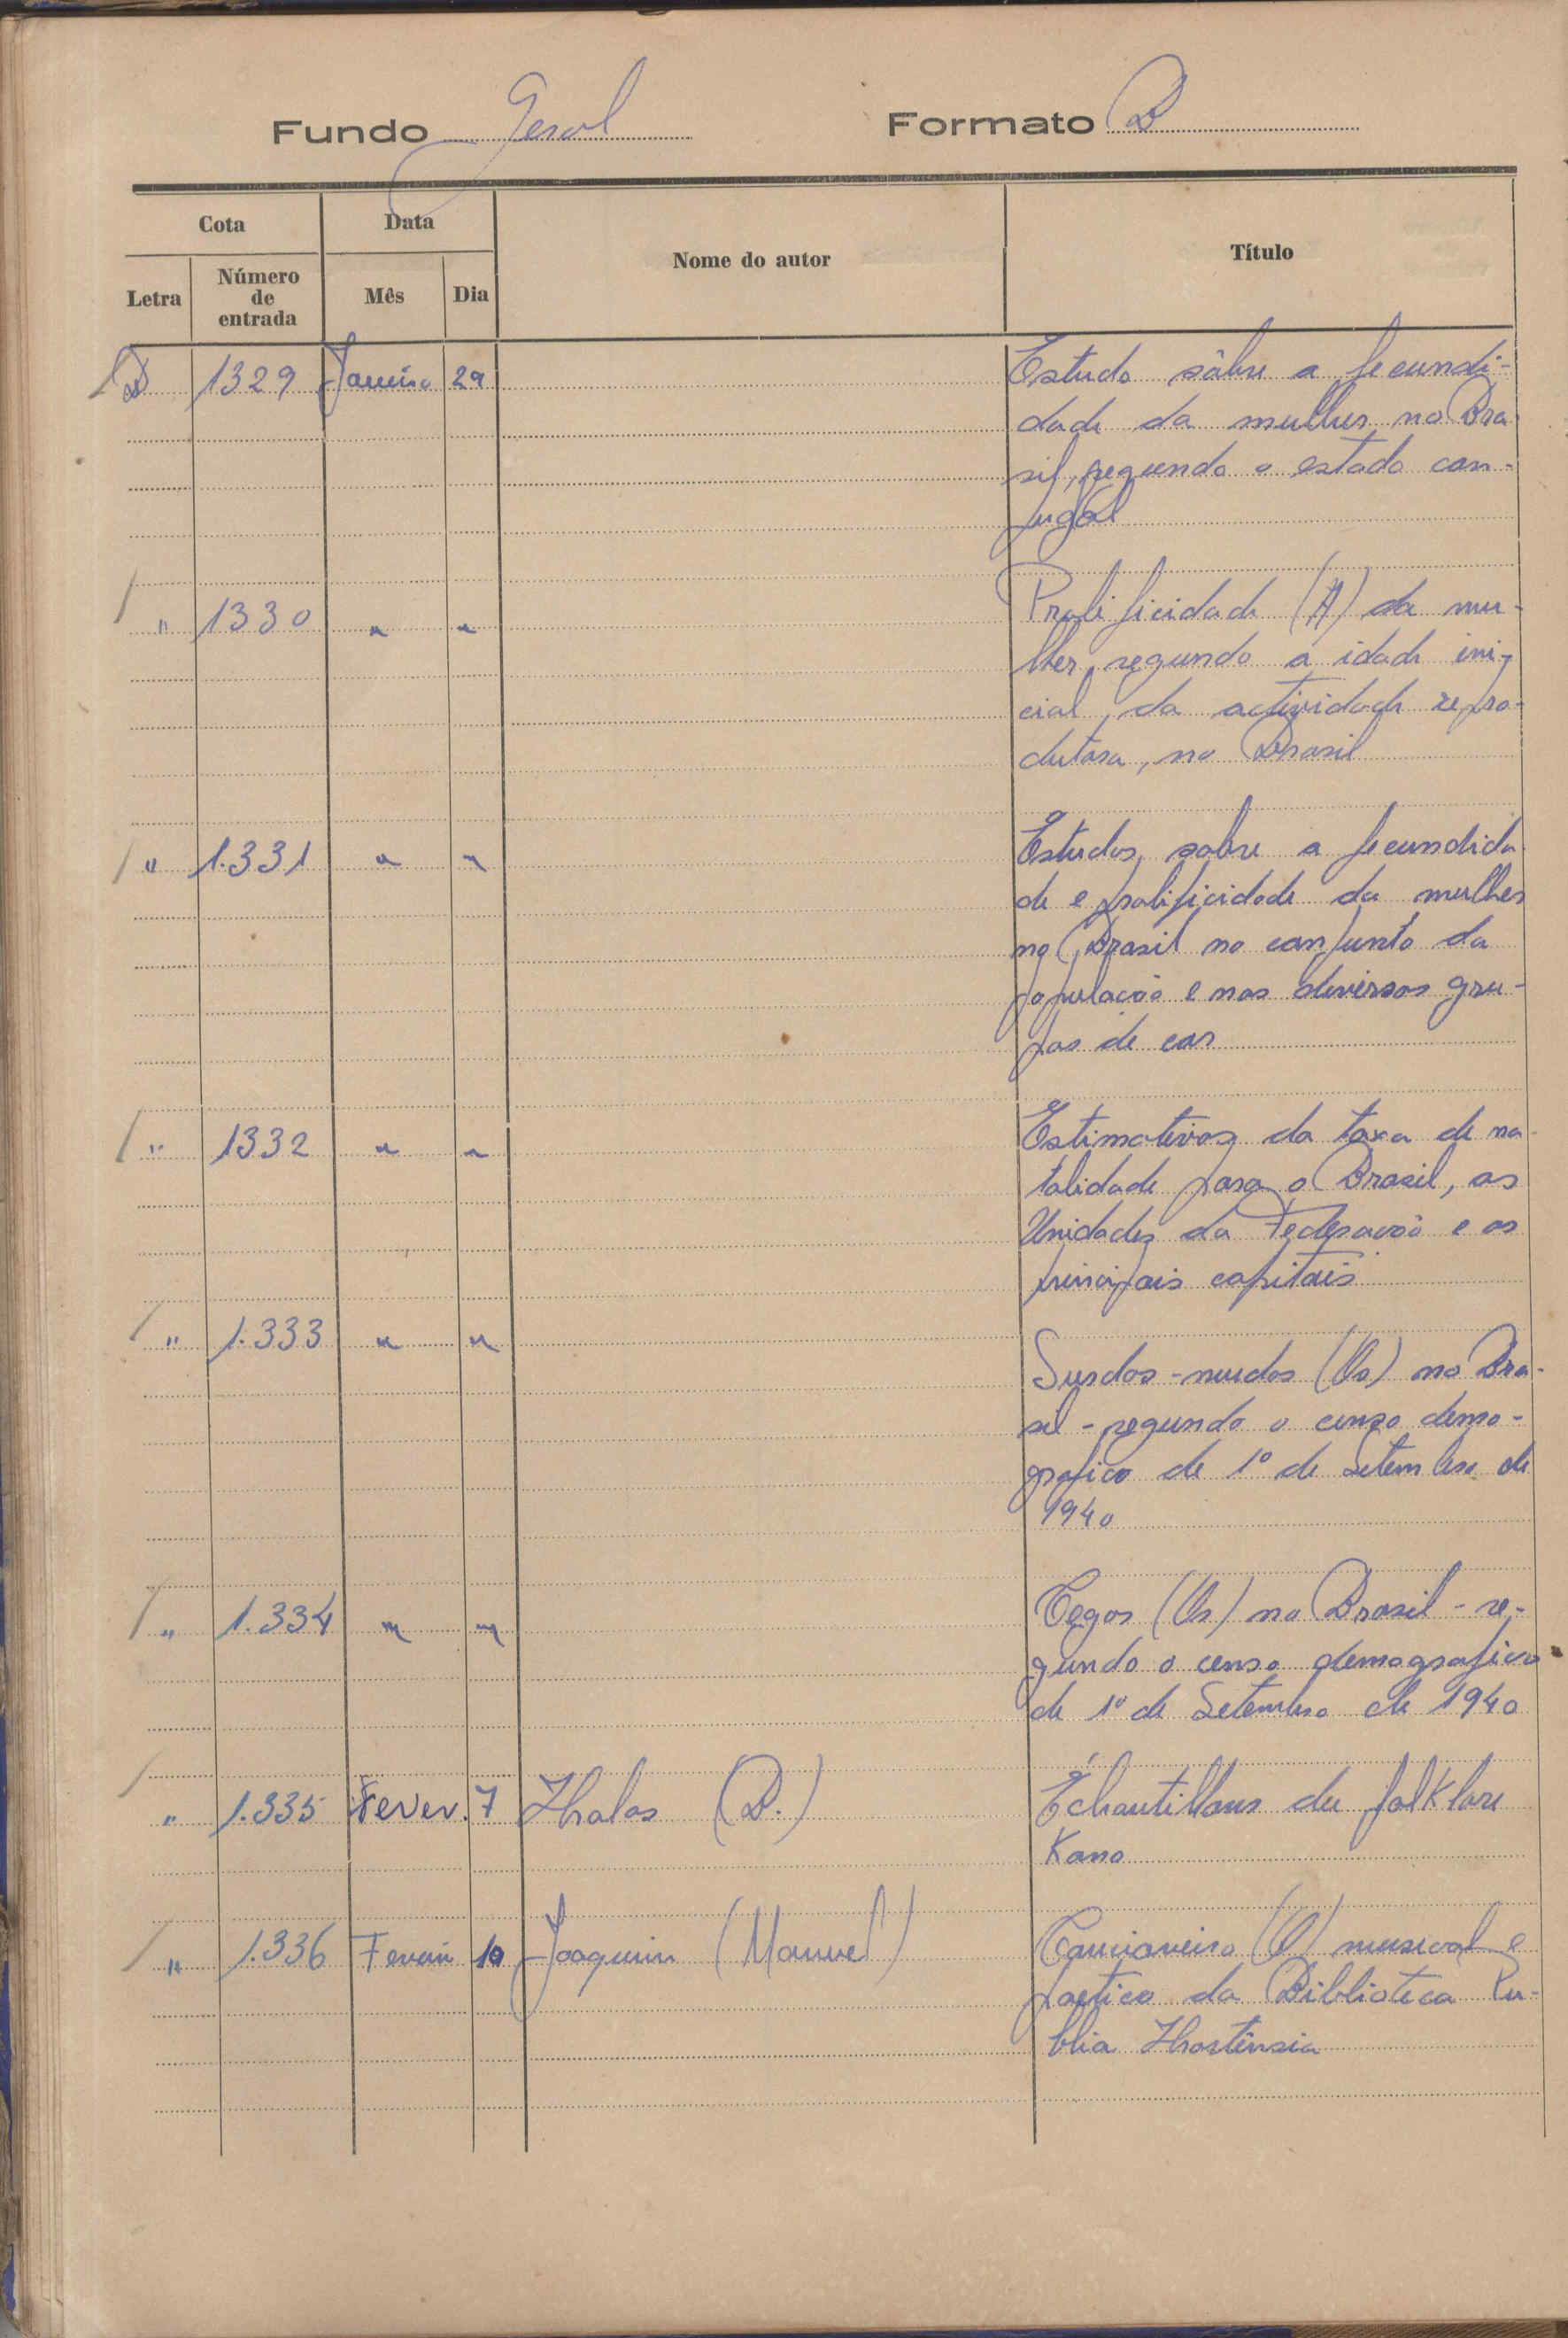 Fundo Geral Formato B
Cota Data Nome do autor Título
Letra Número de entrada Mês Dia
B 1329 Janeiro 29 Estudo sôbre a fecundi-
dade da mulher no Bra-
sil, segundo o estado con-
jugal
" 1330 " " Prolificidade (A) da mu-
lher, segundo a idade ini-
cial, da actividade repro-
dutora, no Brasil
" 1.331 " " Estudos sobre a fecundida
de e prolificidade da mulher
no Brasil no conjunto da
população e nos diversos gru-
pos de cor
" 1332 " " Estimativas da taxa de na-
talidade para o Brasil, as
Unidades da Federação e as
principais capitais
" 1.333 " "
Surdos-mudos (Os) no Bra-
sil - segundo o censo demo-
grafico de 1º de Setembro de
1940
" 1.334 " " Cegos (Os) no Brasil - se-
gundo o censo demografico
de 1º de Setembro de 1940
" 1.335 Fever. 7 Thalas (D.) Échantillons du folKlore
Kano
" 1.336 Feverei 10 Joaquim (Manuel) Cancioneiro (O) musical e
poetico da Biblioteca Pu-
blia Hortênsia